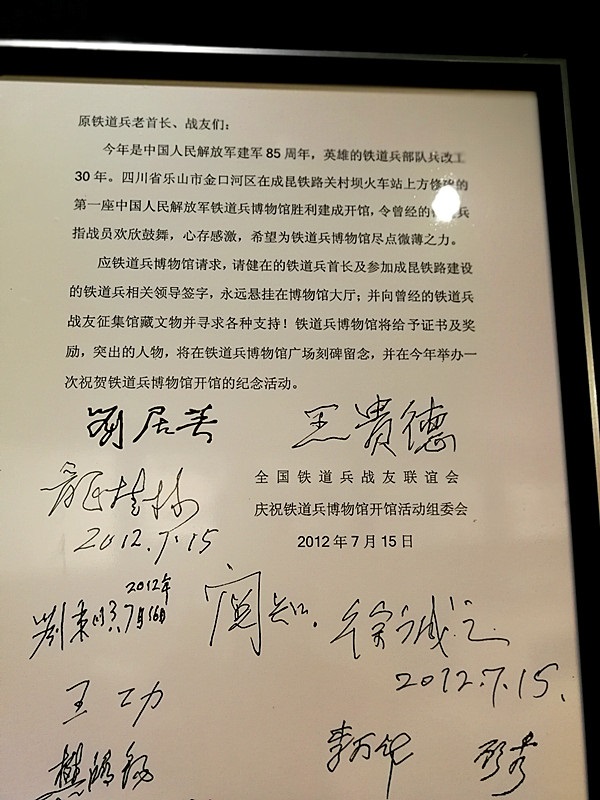 原铁道兵老首长、战友们：
今年是中国人民解放军建军 85 周年，英雄的铁道兵部队兵改工
30 年。四川省乐山市金口河区在成昆铁路关村坝火车站上方修建的
第一座中国人民解放军铁道兵博物馆胜利建成开馆，令曾经的铁道兵
指战员欢欣鼓舞，心存感激，希望为铁道兵博物馆尽点微薄之力。
应铁道兵博物馆请求，请健在的铁道兵首长及参加成昆铁路建设
的铁道兵相关领导签字，永远悬挂在博物馆大厅；并向曾经的铁道兵
战友征集馆藏文物并寻求各种支持！铁道兵博物馆将给予证书及奖
励，突出的人物，将在铁道兵博物馆广场刻碑留念，并在今年举办一
次祝贺铁道兵博物馆开馆的纪念活动。
刘居英 王贵德
全国铁道兵战友联谊会
庆祝铁道兵博物馆开馆活动组委会
2012 年 7 月 15 日
龍桂林
2012.7.15
2012年
7月16日
徐诚之
2012.7.15.
王功
李万华